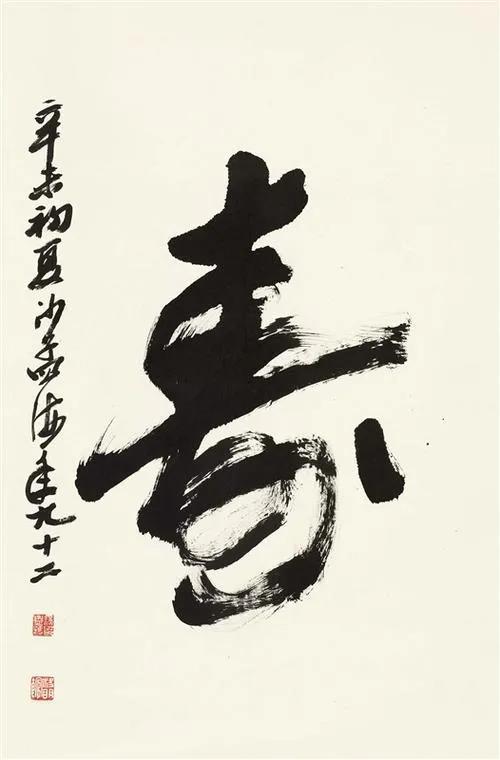 寿
辛未初夏沙孟海年九十二